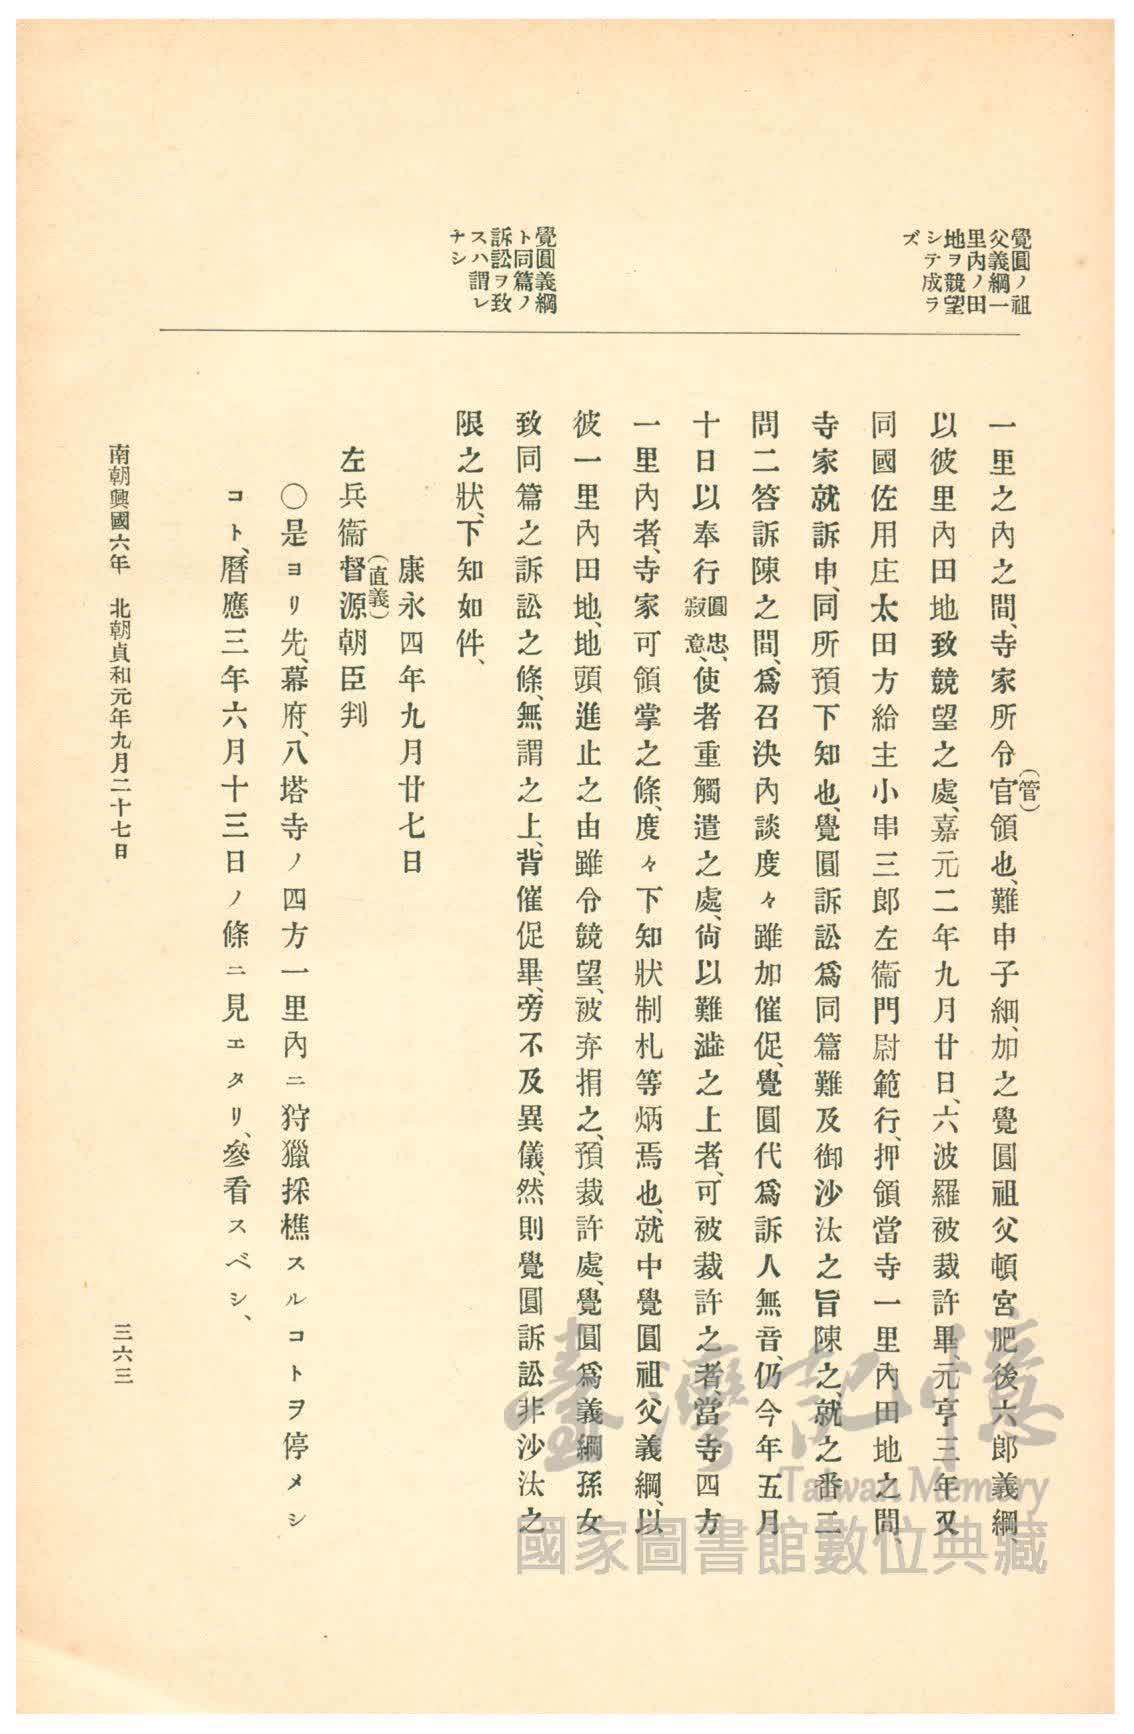 覺圓ノ祖
父義綱一
里内ノ田
地ヲ競望
シテ成ラ
ズ
覺圓義綱
ト同篇ノ
訴訟ヲ致
スハ謂レ
ナシ
一里之內之間、寺家所令官(管)領也、難申子細、加之覺圓祖父頓宮肥後六郎義綱、
以彼里內田地致競望之處、嘉元二年九月廿日、六波羅被裁許畢、元亨三年又
同國佐用庄太田方給主小串三郎左衞門尉範行、押領當寺一里內田地之間、
寺家就訴申、同所預下知也、覺圓訴訟爲同篇難及御沙汰之旨陳之、就之番二
問二答訴陳之間、爲召決內談度々雖加催促、覺圓代爲訴人無音、仍今年五月
十日以奉行圓忠、寂意、使者重觸遣之處、尙以難澁之上者、可被裁許之者、當寺四方
一里內者、寺家可領掌之條、度々下知狀制札等炳焉也、就中覺圓祖父義綱、以
彼一里內田地、地頭進止之由雖令競望、被弃捐之、預裁許處、覺圓爲義綱孫女
致同篇之訴訟之條、無謂之上、背催促畢、旁不及異儀、然則覺圓訴訟非沙汰之
限之狀、下知如件、
康永四年九月廿七日
左兵衞督源朝臣判
(直義)
○是ヨリ先、幕府、八塔寺ノ四方一里內ニ狩獵採樵スルコトヲ停メシ
コト、曆應三年六月十三日ノ條ニ見エタリ、參看スベシ、
南朝興國六年 北朝貞和元年九月二十七日
三六三
臺灣記憶
Taiwan Memory
國家圖書館數位典藏